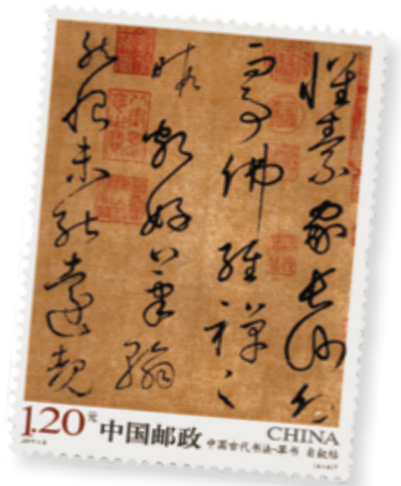 懷素家長沙幼
而事佛經禪之
暇頗好筆翰
然恨未能遠覩
1.20元 中国邮政 CHINA
中国古代书法-草书 自叙帖